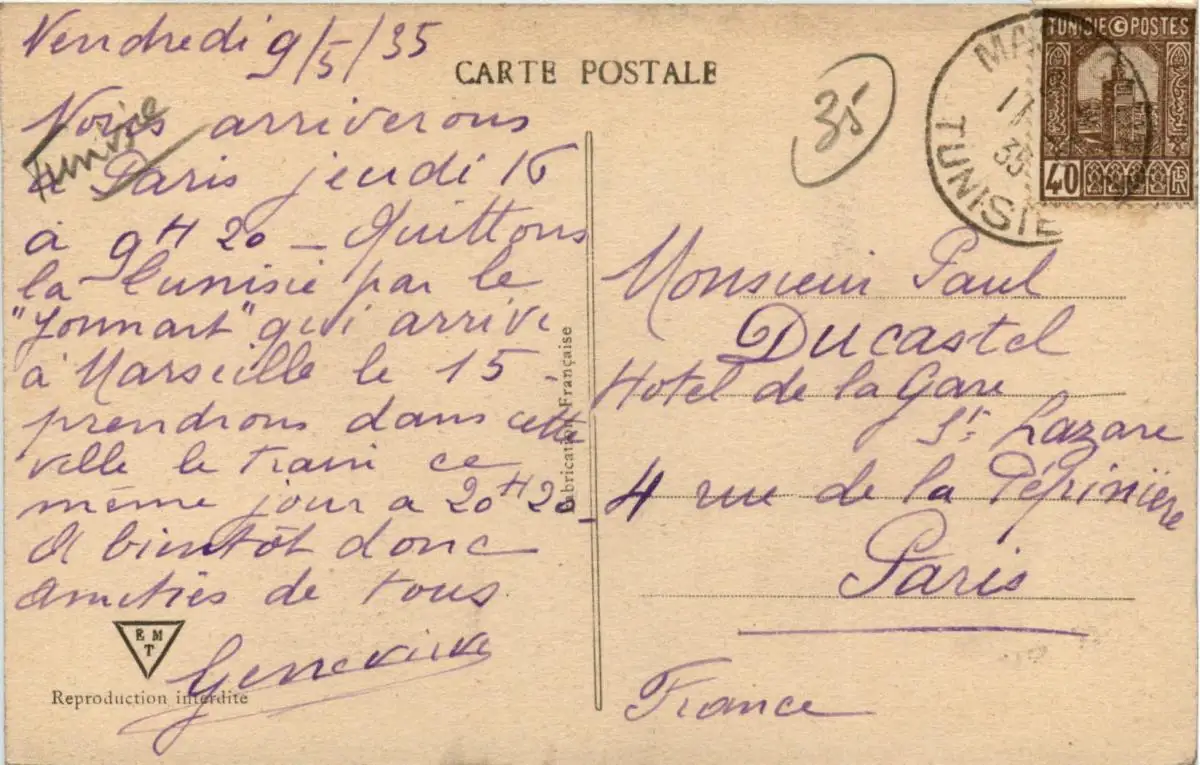 Vendredi 9/5/35
CARTE POSTALE
35
TUNISIE POSTES
MA
17
35
TUNISIE
40
Tunisie
Nous arriverons
à Paris jeudi 16
à 9H 20 _ Quittons
la Tunisie par le
"Jonnart" qui arrive
à Marseille le 15,
prendrons dans cette
ville le train ce
même jour a 20H20_
A bientôt donc
amitiés de tous
Genevieve
Monsieur Paul
Ducastel
Hotel de la Gare
St. Lazare
4 rue de la Pépinière
Paris
France
Fabrication Française
E M
T
Reproduction interdite